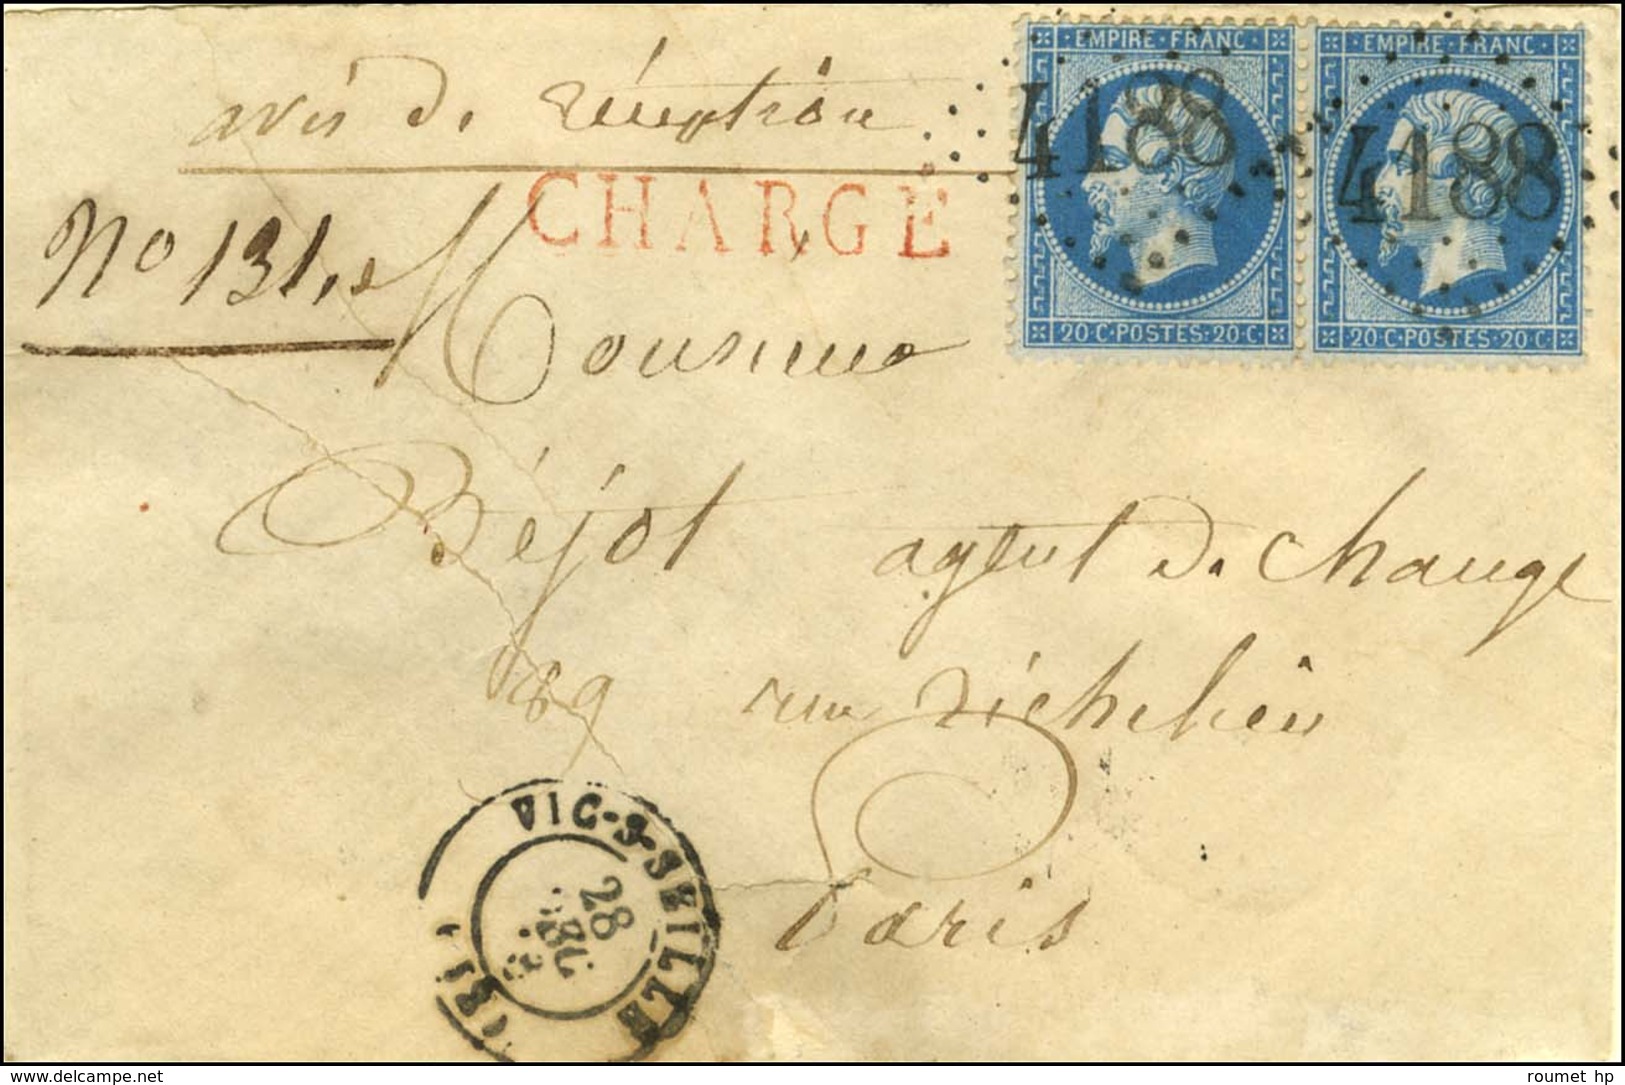 EMPIRE · FRANC
EMPIRE · FRANC
4188
4188
20 C · POSTES · 20 C
20 C · POSTES · 20 C
avis de réception
CHARGÉ
No 131.
Monsieur
Béjot agent de change
89 rue Richelieu
Paris
VIC-S-SEILLE
28
www.delcampe.net
roumet hp